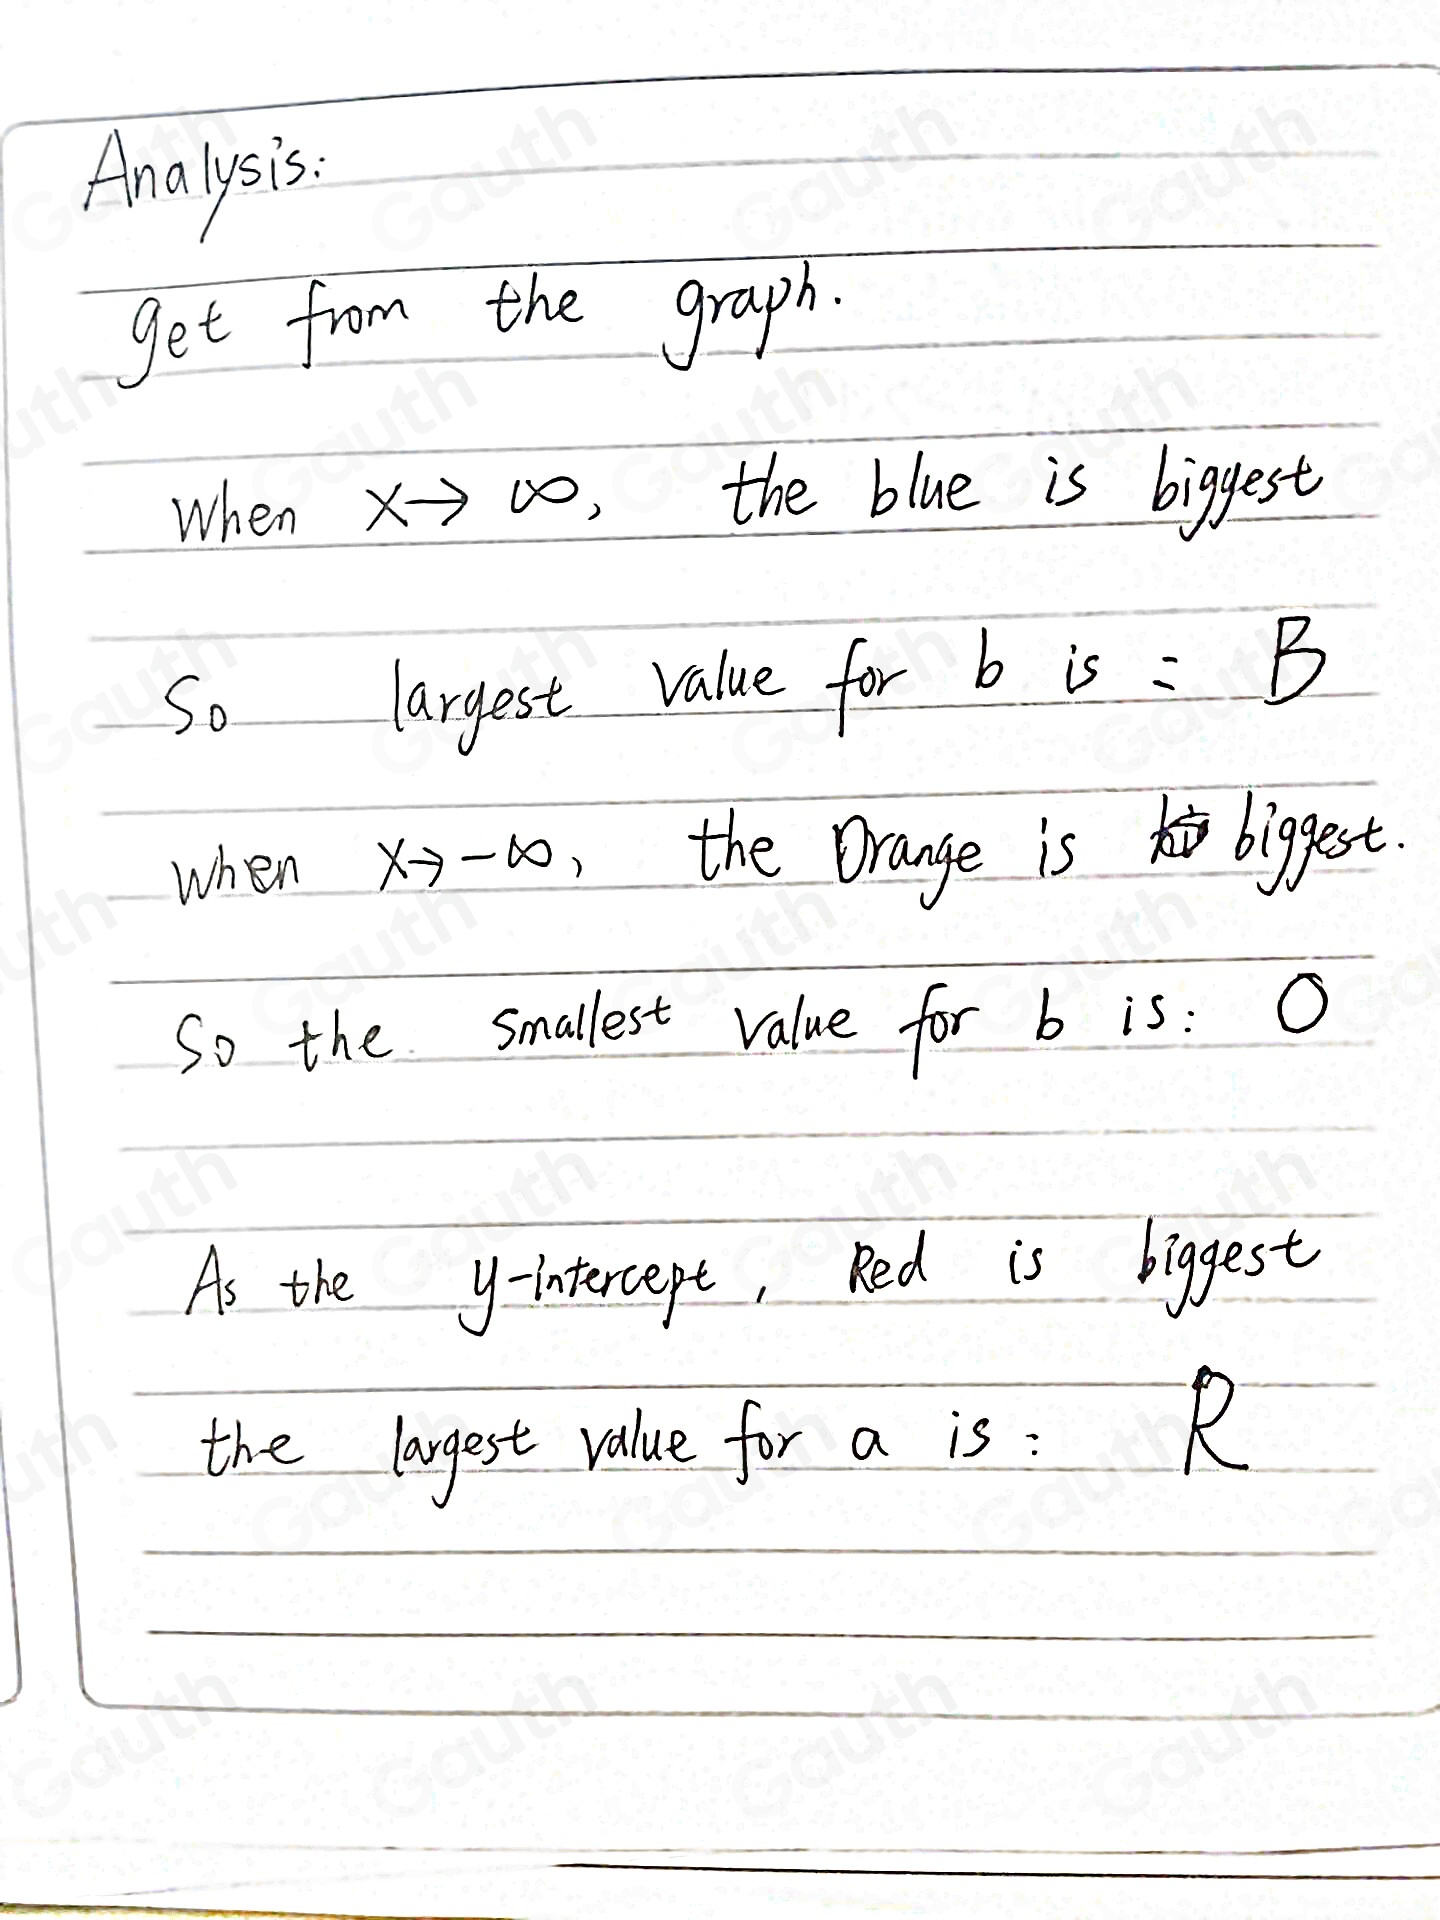 Analysis:
get from the graph.
When x→ ∞, the blue is biggest
So largest value for b is = B
when x→-∞, the Orange is biggest.
So the smallest value for b is: O
As the y-intercept, Red is biggest
the largest value for a is: R